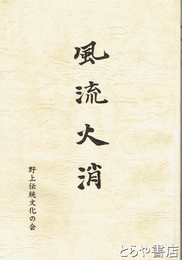 風流火消
野上伝統文化の会
とらや書店